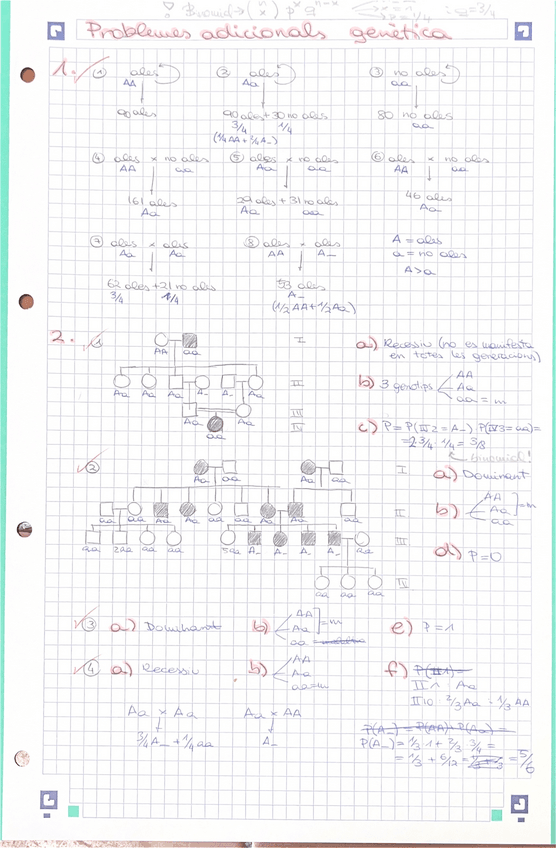 Binomi → (n x) p^x q^n-x
q = 3/4
Problemes adicionals genètica
1.
① ales
AA
90 ales
② ales
Aa
90 ales + 30 no ales
3/4 1/4
(1/4 AA + 2/4 A_)
③ no ales
aa
80 no ales
aa
④ ales × no ales
AA aa
161 ales
Aa
⑤ ales × no ales
Aa aa
29 ales + 31 no ales
Aa aa
⑥ ales × no ales
AA aa
46 ales
Aa
⑦ ales × ales
Aa Aa
62 ales + 21 no ales
3/4 1/4
⑧ ales × ales
AA A_
53 ales
A_
(1/2 AA + 1/2 Aa)
A = ales
a = no ales
A > a
2.
①
AA aa
I
Aa Aa Aa A_ A_ Aa
II
Aa Aa
III
IV
aa
a) Recessiu (no es manifesta
en totes les generacions)
b) 3 genotips
AA
Aa
aa = m
c) P = P(III2 = A_) · P(IV3 = aa) =
= 2 3/4 · 1/4 = 3/8
Binomial!
②
Aa aa Aa aa
I
aa aa Aa Aa aa aa Aa Aa aa
II
aa 2aa aa aa 5aa A_ A_ A_ A_ aa
III
aa aa aa
IV
a) Dominant
b)
AA
Aa
= m
aa
d) P = 0
③ a) Dominant
b)
AA
Aa
= m
aa
e) P = 1
④ a) Recessiu
b)
AA
Aa
aa = m
f) P(II1) =
II1 Aa
II10 2/3 Aa · 1/3 AA
Aa × Aa
3/4 A_ + 1/4 aa
Aa × AA
A_
P(A_) = P(AA) + P(Aa) =
P(A_) = 1/3 · 1 + 2/3 · 3/4 =
= 1/3 + 6/12 = = 5/6